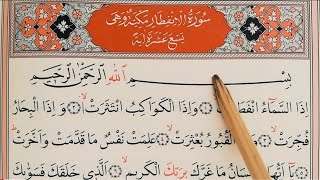 سُورَةُ الْاِنْفِطَارِ مَكِّيَّةٌ وَهِيَ
تِسْعَ عَشْرَةَ اٰيَةً
بِسْمِ اللّٰهِ الرَّحْمٰنِ الرَّحِيمِ
اِذَا السَّمَٓاءُ انْفَطَرَتْۙ وَاِذَا الْكَوَاكِبُ انْتَثَرَتْۙ وَاِذَا الْبِحَارُ
فُجِّرَتْۙ الْقُبُورُ بُعْثِرَتْۙ عَلِمَتْ نَفْسٌ مَا قَدَّمَتْ وَاَخَّرَتْۜ
يَٓا اَيُّهَا مَا غَرَّكَ بِرَبِّكَ الْكَرِيمِۙ اَلَّذِي خَلَقَكَ فَسَوّٰيكَ